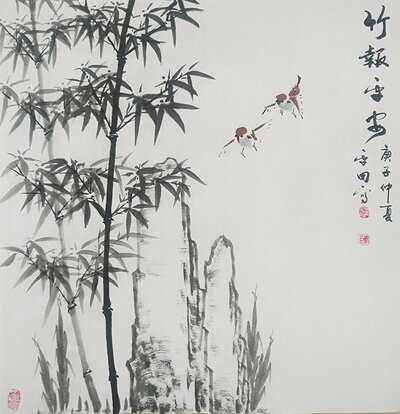 竹報平安
庚子仲夏
守田寫